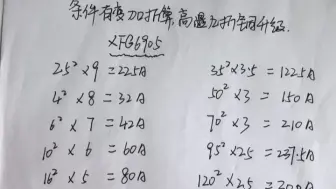 条件有变加折算,高温九折铜升级.
XFG6905
25² × 9 = 225A
4² × 8 = 32A
6² × 7 = 42A
10² × 6 = 60A
16² × 5 = 80A
35² × 3.5 = 122.5A
50² × 3 = 150A
70² × 3 = 210A
95² × 2.5 = 237.5A
120² × 2.5 =